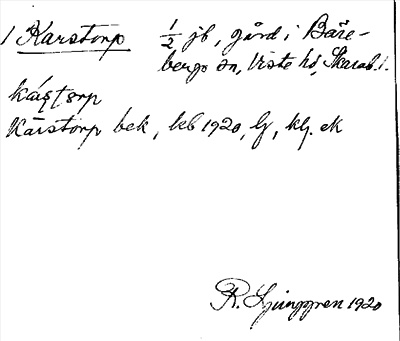 1 Karstorp ½ jb, gård i Båre-
bergs sn, Viste hd, Skarab. l.
Kárstorp
Kårstorp bek, kb 1920, lj, klj. ek
R. Ljunggren 1920